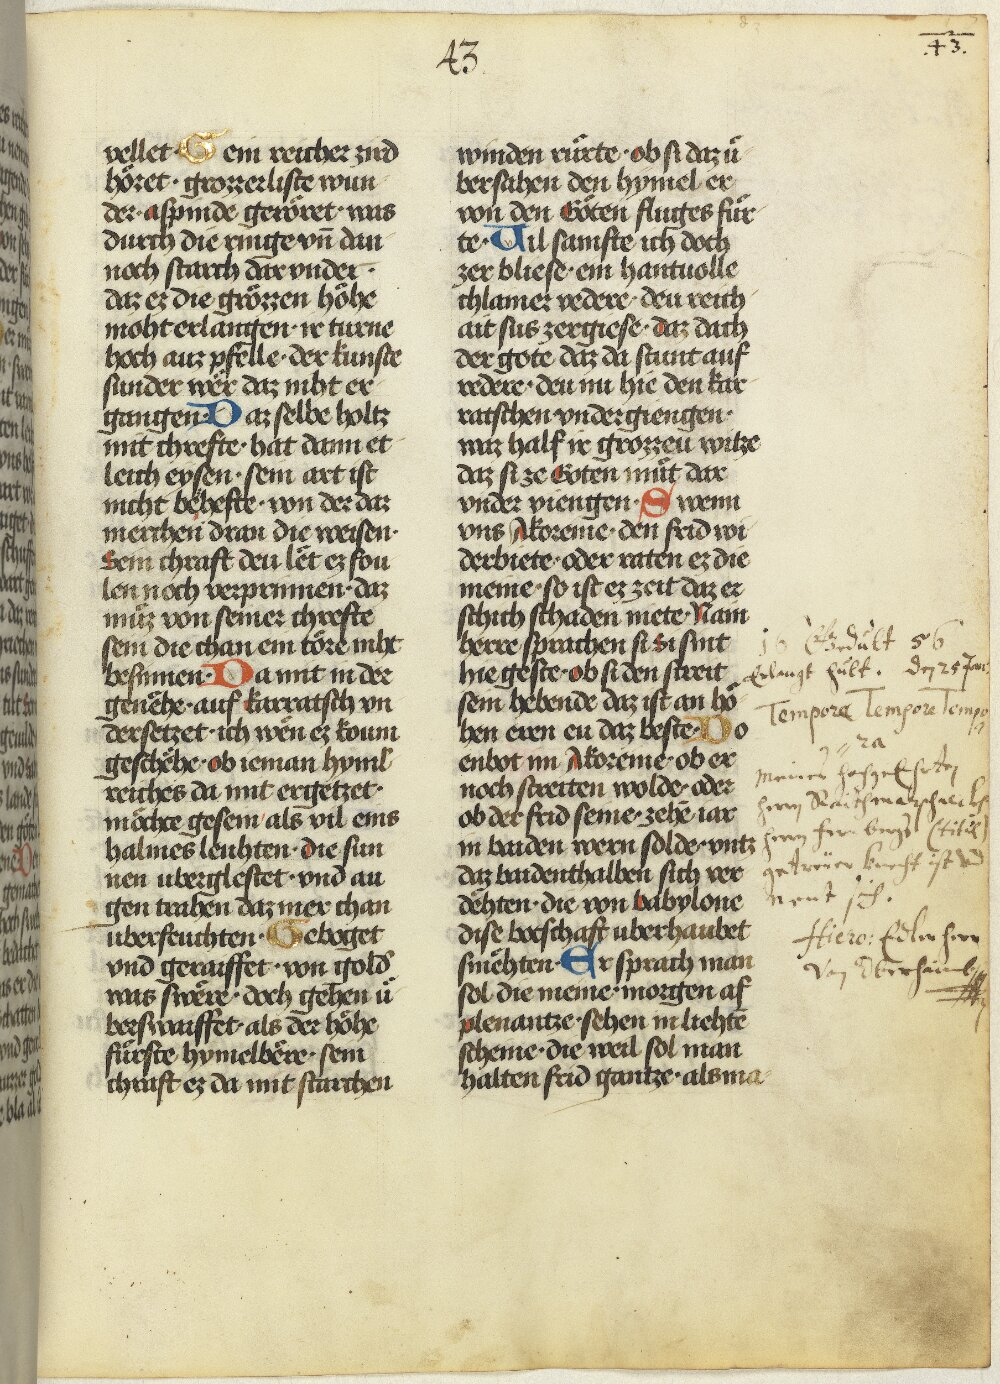 43
.43.
vellet · Sein reicher zird
höret · grozzerliste wun
der · aspinde geröret · was
durch die ringe vn̄ dan
noch starch dar vnder ·
daz ez die grözzen höhe
moht erlangen · ir turne
hoch auz pfelle · der kunste
sunder wër daz niht er
gangen · Daz selbe holtz
mit chrefte · hat dann et
leich eysen · sein art ist
nicht behefte · von der daz
merchen dran die weisen ·
Sein chraft deu lët ez fou
len noch verprinnen · daz
müz von seiner chrefte
sein die chan ein töre niht
besinnen · Da mit in der
genëhe · auf karratsch vn
dersetzet · ich wën ez koum
geschëhe · ob ieman hymil
reiches da mit ergetzet ·
möchte gesein als vil eins
halmes leuhten · die sun
nen uberglestet · vnd au
gen traben daz mer chan
uberfeuchten · Geboget
vnd geraiffet · von gold
was swëre · doch gehen ü
berswaiffet · als der höhe
fürste hymelbëre · sein
chraft ez da mit starchen
winden rürte · ob si daz ü
bersahen den hymel er
von den Göten fluges für
te · Vil samfte ich doch
zer bliese · ein hantuolle
chlainer vedere · deu reich
ait sus zergiese · daz dach
der gote daz da stunt auf
vedere · deu nu hie den kar
ratschen vnder giengen ·
waz half ir grozzeu witze
daz si ze Goten müt dar
vnder viengen · Swenn
vns Akoreine · den frid wi
derbiete · oder raten ez die
meine · so ist ez zeit daz er
sich schaden niete · Nain
herre sprachen si Si sint
hie geste · ob si den streit
sein hebende daz ist an hö
hen eren eu daz beste · Do
enbot im Akoreine · ob er
noch streiten wolde · oder
ob der frid seine · zehē iar
in baiden wern solde · vntz
daz baidenthalben sich ver
dëhten · die von babylone
dise botschaft uberhaubet
smëhten · Er sprach man
sol die meine · morgen af
plenantze · sehen in liehtē
scheine · die weil sol man
halten frid gantze · als ma
Gedult 56
Erlangt hült. den 25 Jan:
Tempora Tempore Tempo
ra
meines
herrn
herrn
getreuer knecht ist vnd
Hiero: Edler herr
Von